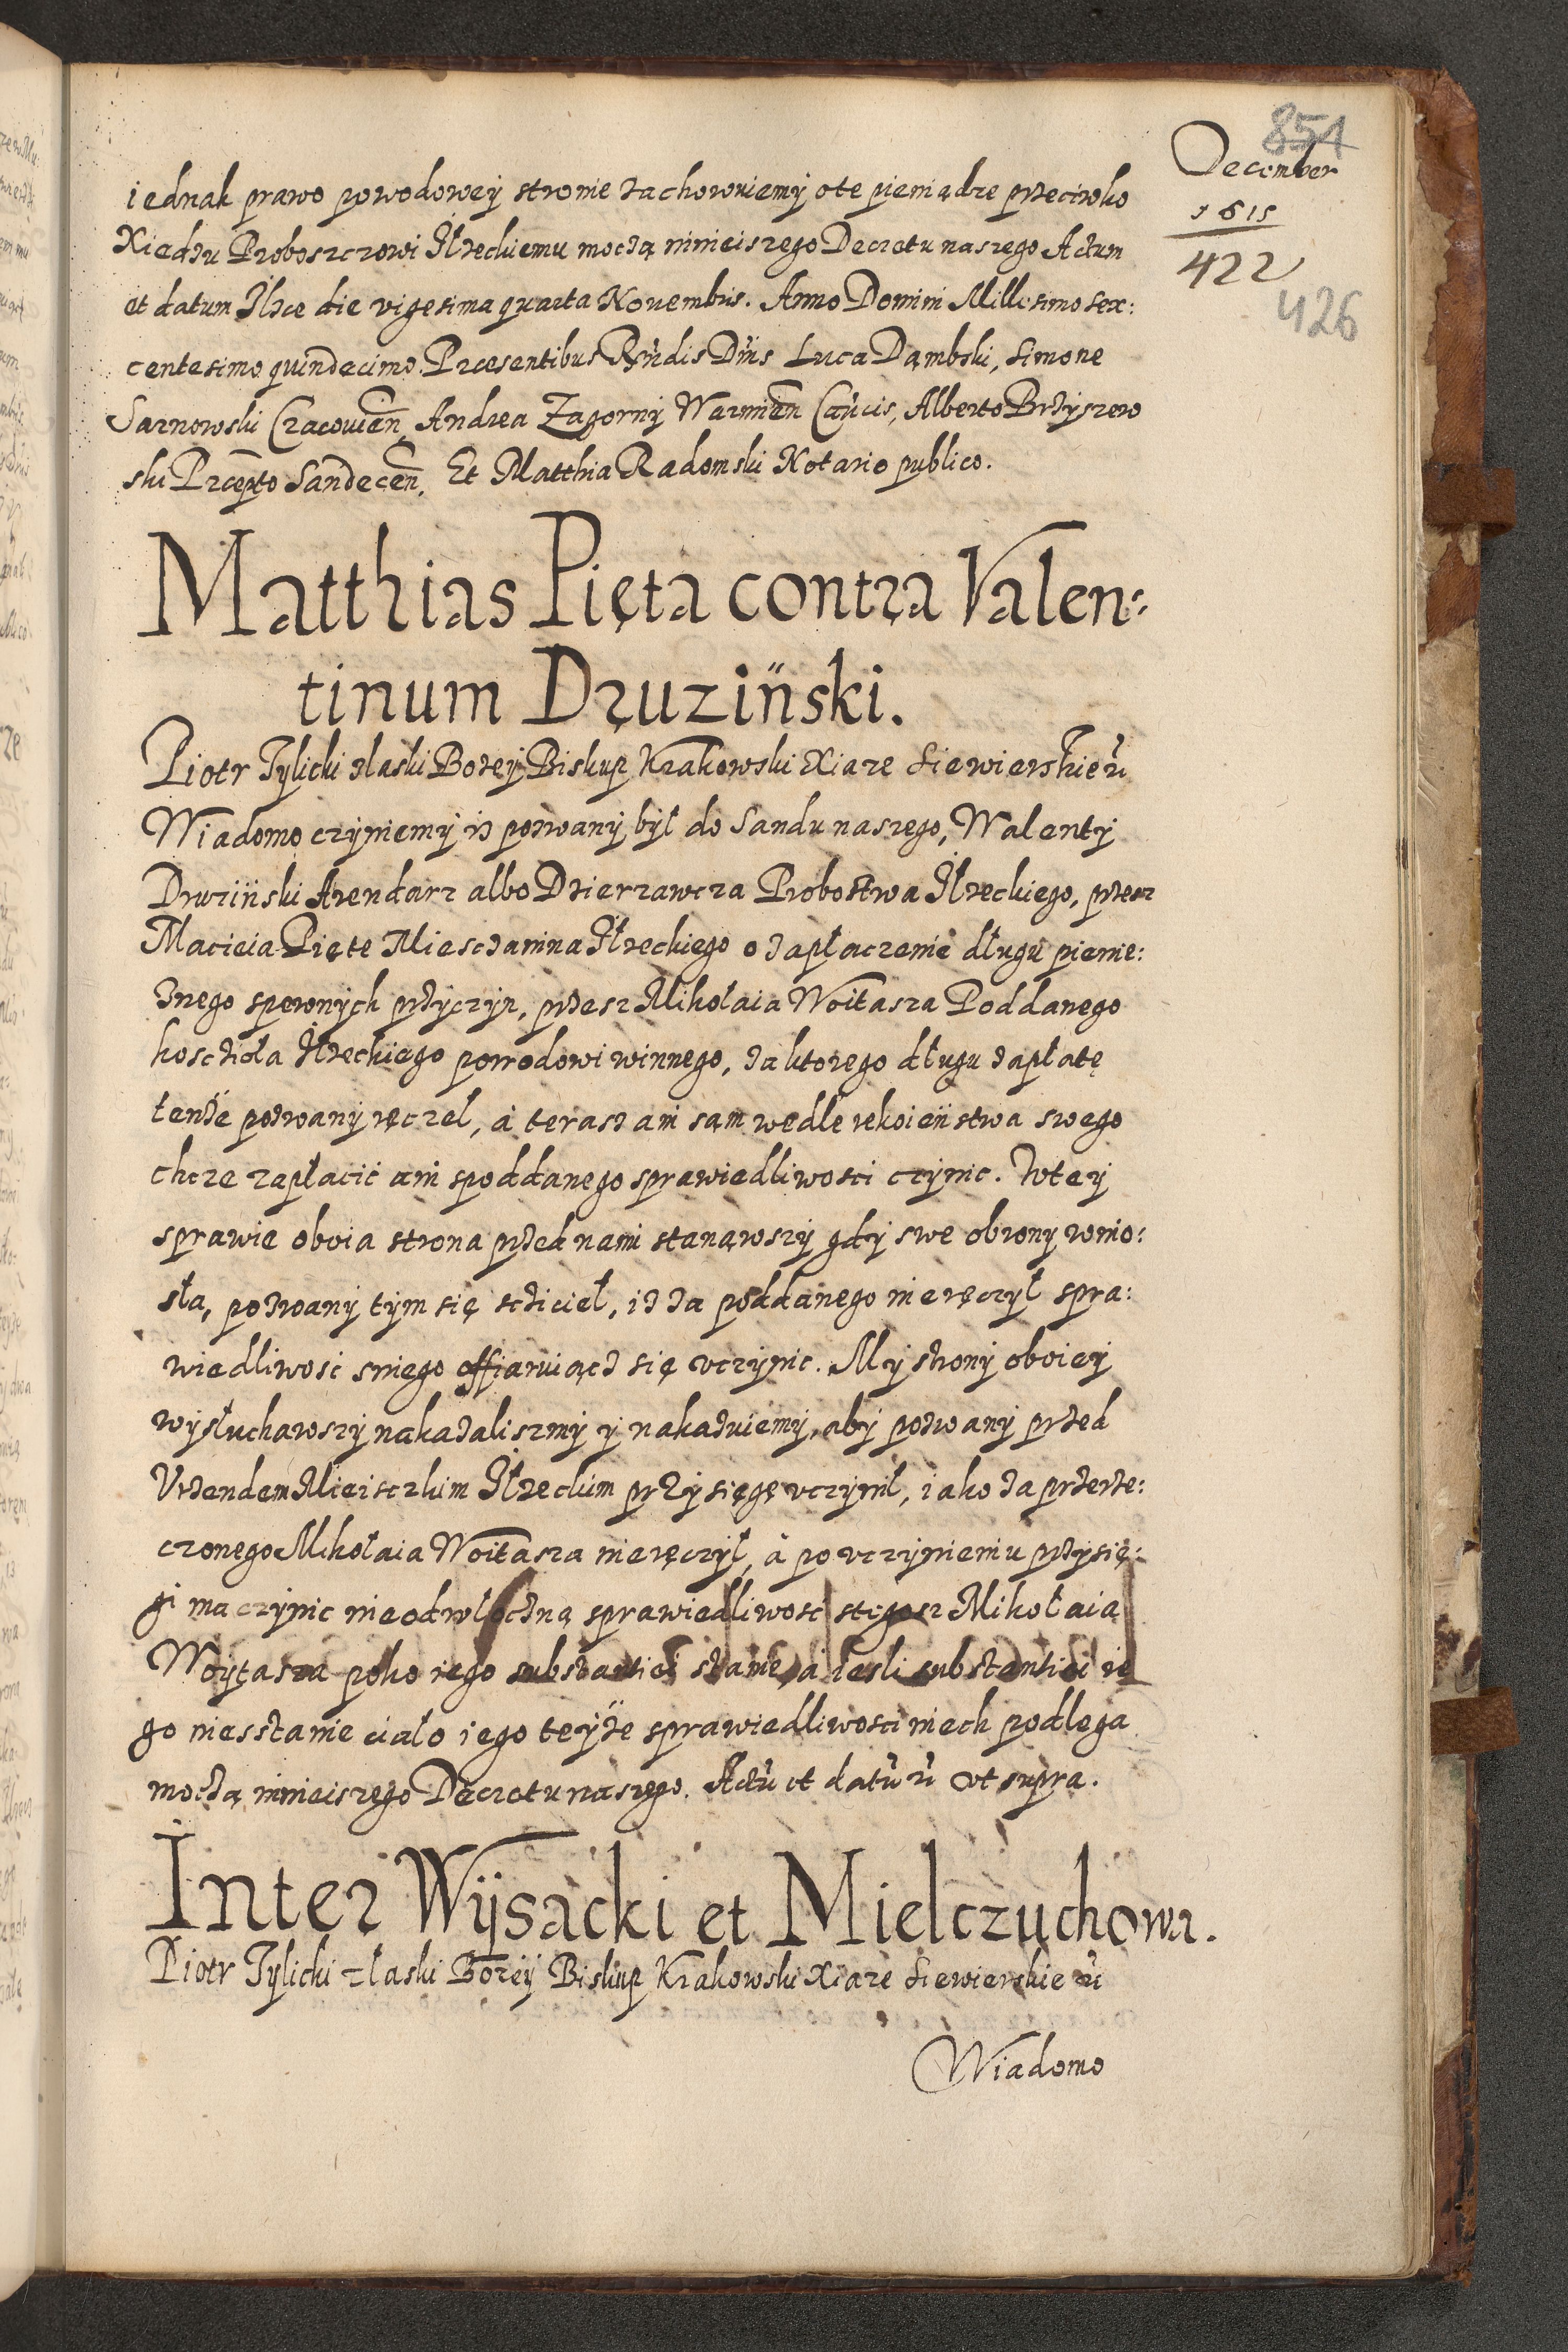 854
December
1615
422
426
iednak prawo powodowey stronie zachowuiemy o te pieniądze przeciwko
Xiedzu Proboszczowi Iłzeckiemu moczą ninieiszego Decretu naszego Actum
et datum Ilzce die vigesima quarta Nouembris. Anno Domini Millesimo sex:
centesimo quindecimo. Praesentibus Rn̄dis Dn̄is Luca Dąmbski, Simone
Sarnowski Cracouień, Andrea Zagorny Warmień Cań̄cis, Alberto Brzyszew
ski Praep̄to Sandeceń, Et Matthia Radomski Notario publico.
Matthias Pięta contra Valen:
tinum Druziński.
Piotr Tylicki złaski Bozey Biskup Krakowski Xiaze Siewierskie ū
Wiadomo czyniemy iz pozwany był do Sandu naszego, Walenty
Druziński Arendarz albo Dzierzawcza Probostwa Iłzeckiego, przesz
Macieia Pięte Miesczanina Iłzeckiego o zapłaczenie długu pienie:
znego spewnych przyczyn, przesz Mikołaia Woitasza Poddanego
kosczioła Iłzeckiego powodowi winnego, za ktorego długu zapłatę
tenze pozwany ręczel, a teraz ani sąm wedle rekoieństwa swego
chcze zapłacić ani spoddanego sprawiedliwosci czynic. Wtey
sprawie oboia strona przed nami stanąwszy gdy swe obrony wnio:
sła, pozwany tym się scziciel, iz za poddanego nie ręczył spra:
wiedliwosc sniego offiaruiącz się vczynic. My strony oboiey
wysłuchawszy nakazaliszmy y nakazuiemy, aby pozwany przed
Vrzendem Mieisczkim Iłzeckim przysięgę vczynil, iako za przerze:
czonego Mikołaia Woitasza nieręczył, a po vczynieniu przysię:
gi ma czynic nieodwłoczną sprawiedliwosc stegosz Mikołaia
Woytasza poko iego substantiei stanie, a iesli substantiei ie
go niesstanie ciało iego teyze sprawiedliwosci niech podlega
moczą ninieiszego Decretu naszego. Actū et datū ū vt supra.
Inter Wysacki et Mielczuchowa.
Piotr Tylicki złaski Bozey Biskup Krakowski Xiaze Siewierskie ū
Wiadomo